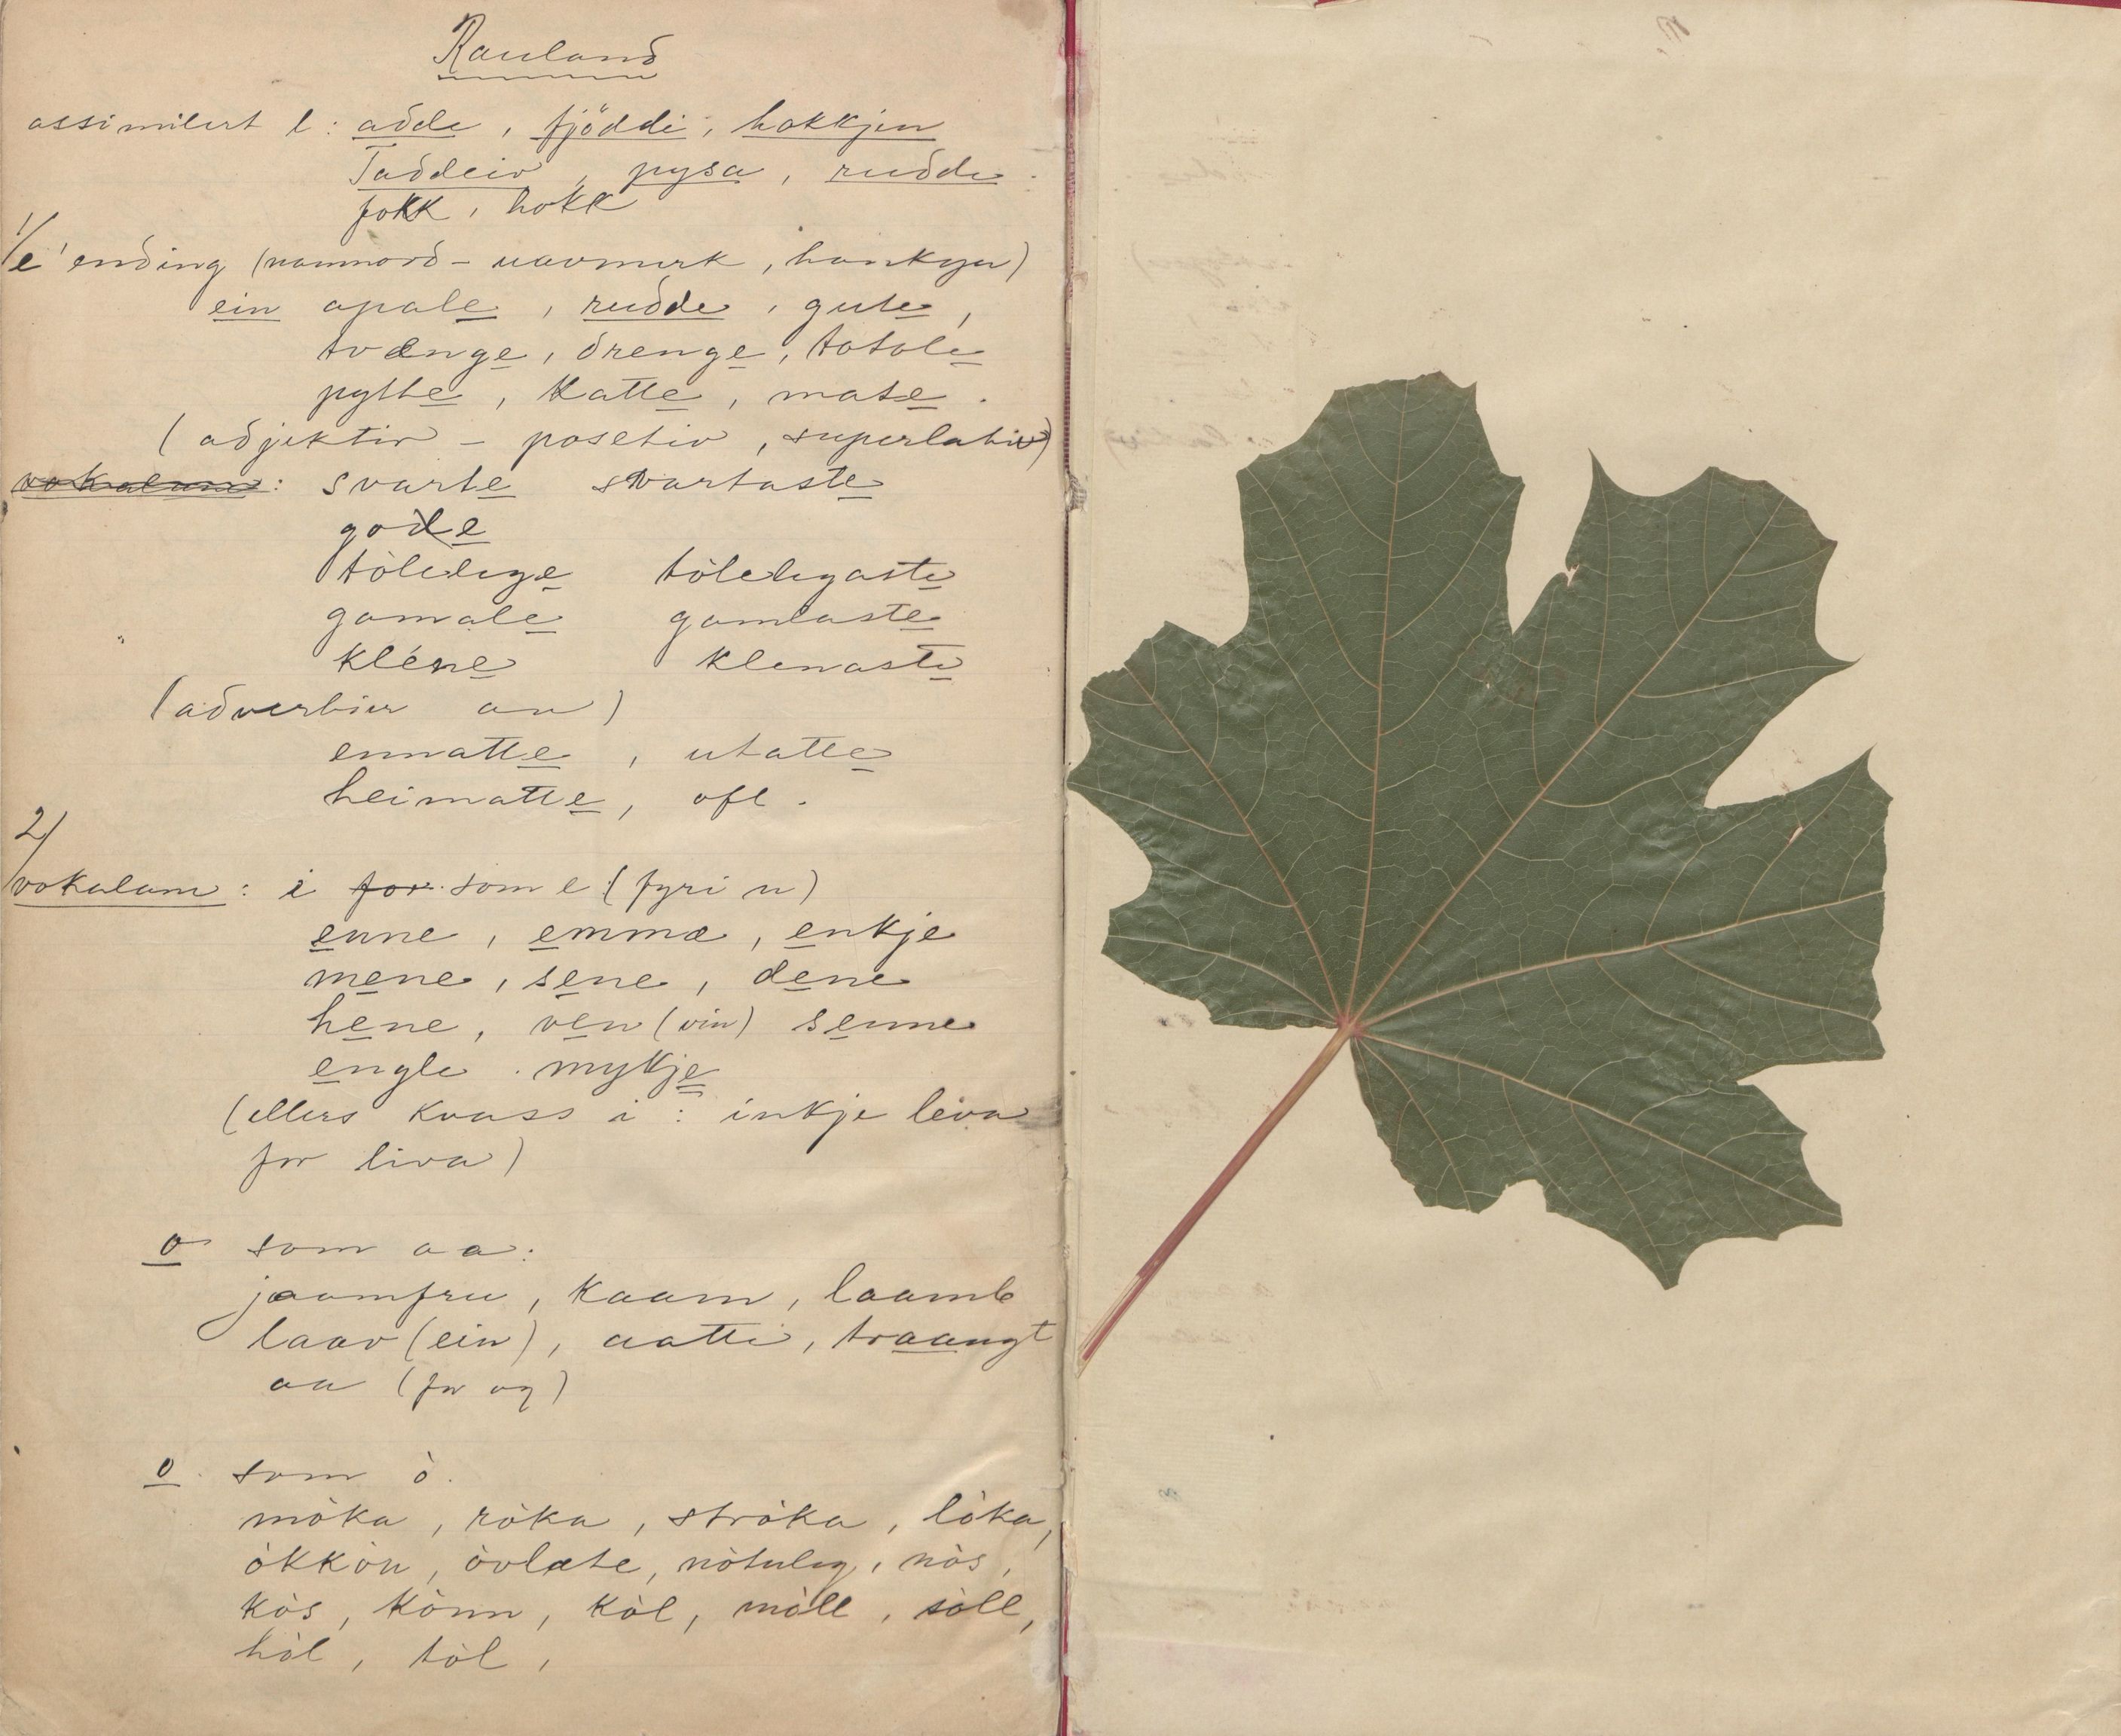 Rauland
assimilert l: adde, fjöddi, hokkjen
Taddeiv, pysa, rudde.
fokk, hokk
1/ e ending (namnord – uavmerk, hankyn)
ein apale, rudde, gute,
tvænge, drenge, totale
pytte, katte, mate.
(adjektiv – posetiv, superlativ)
vokalane: svarte svartaste
gode
tòlelege tòlelegaste
gamale gamlaste
kléne klenaste
(adverbier an)
ennatte, utatte
heimatte, ofl.
2/
vokalane: i for som e (fyri n)
enne, emmæ, enkje
mene, sene, dene
hene, ven (vin) senne
engle. mykje
(ellers kvass i: inkje leva
for liva)
o som aa:
jaamfru, kaam, laamb
laav (ein), aatti, traangt
aa (for og)
o som ò.
mòka, ròka, stròka, lòka,
òkkòn, òvlæte, nòtuleg, nòs,
kòs, kònn, kòl, mòll, sòll,
hòl, tòl,